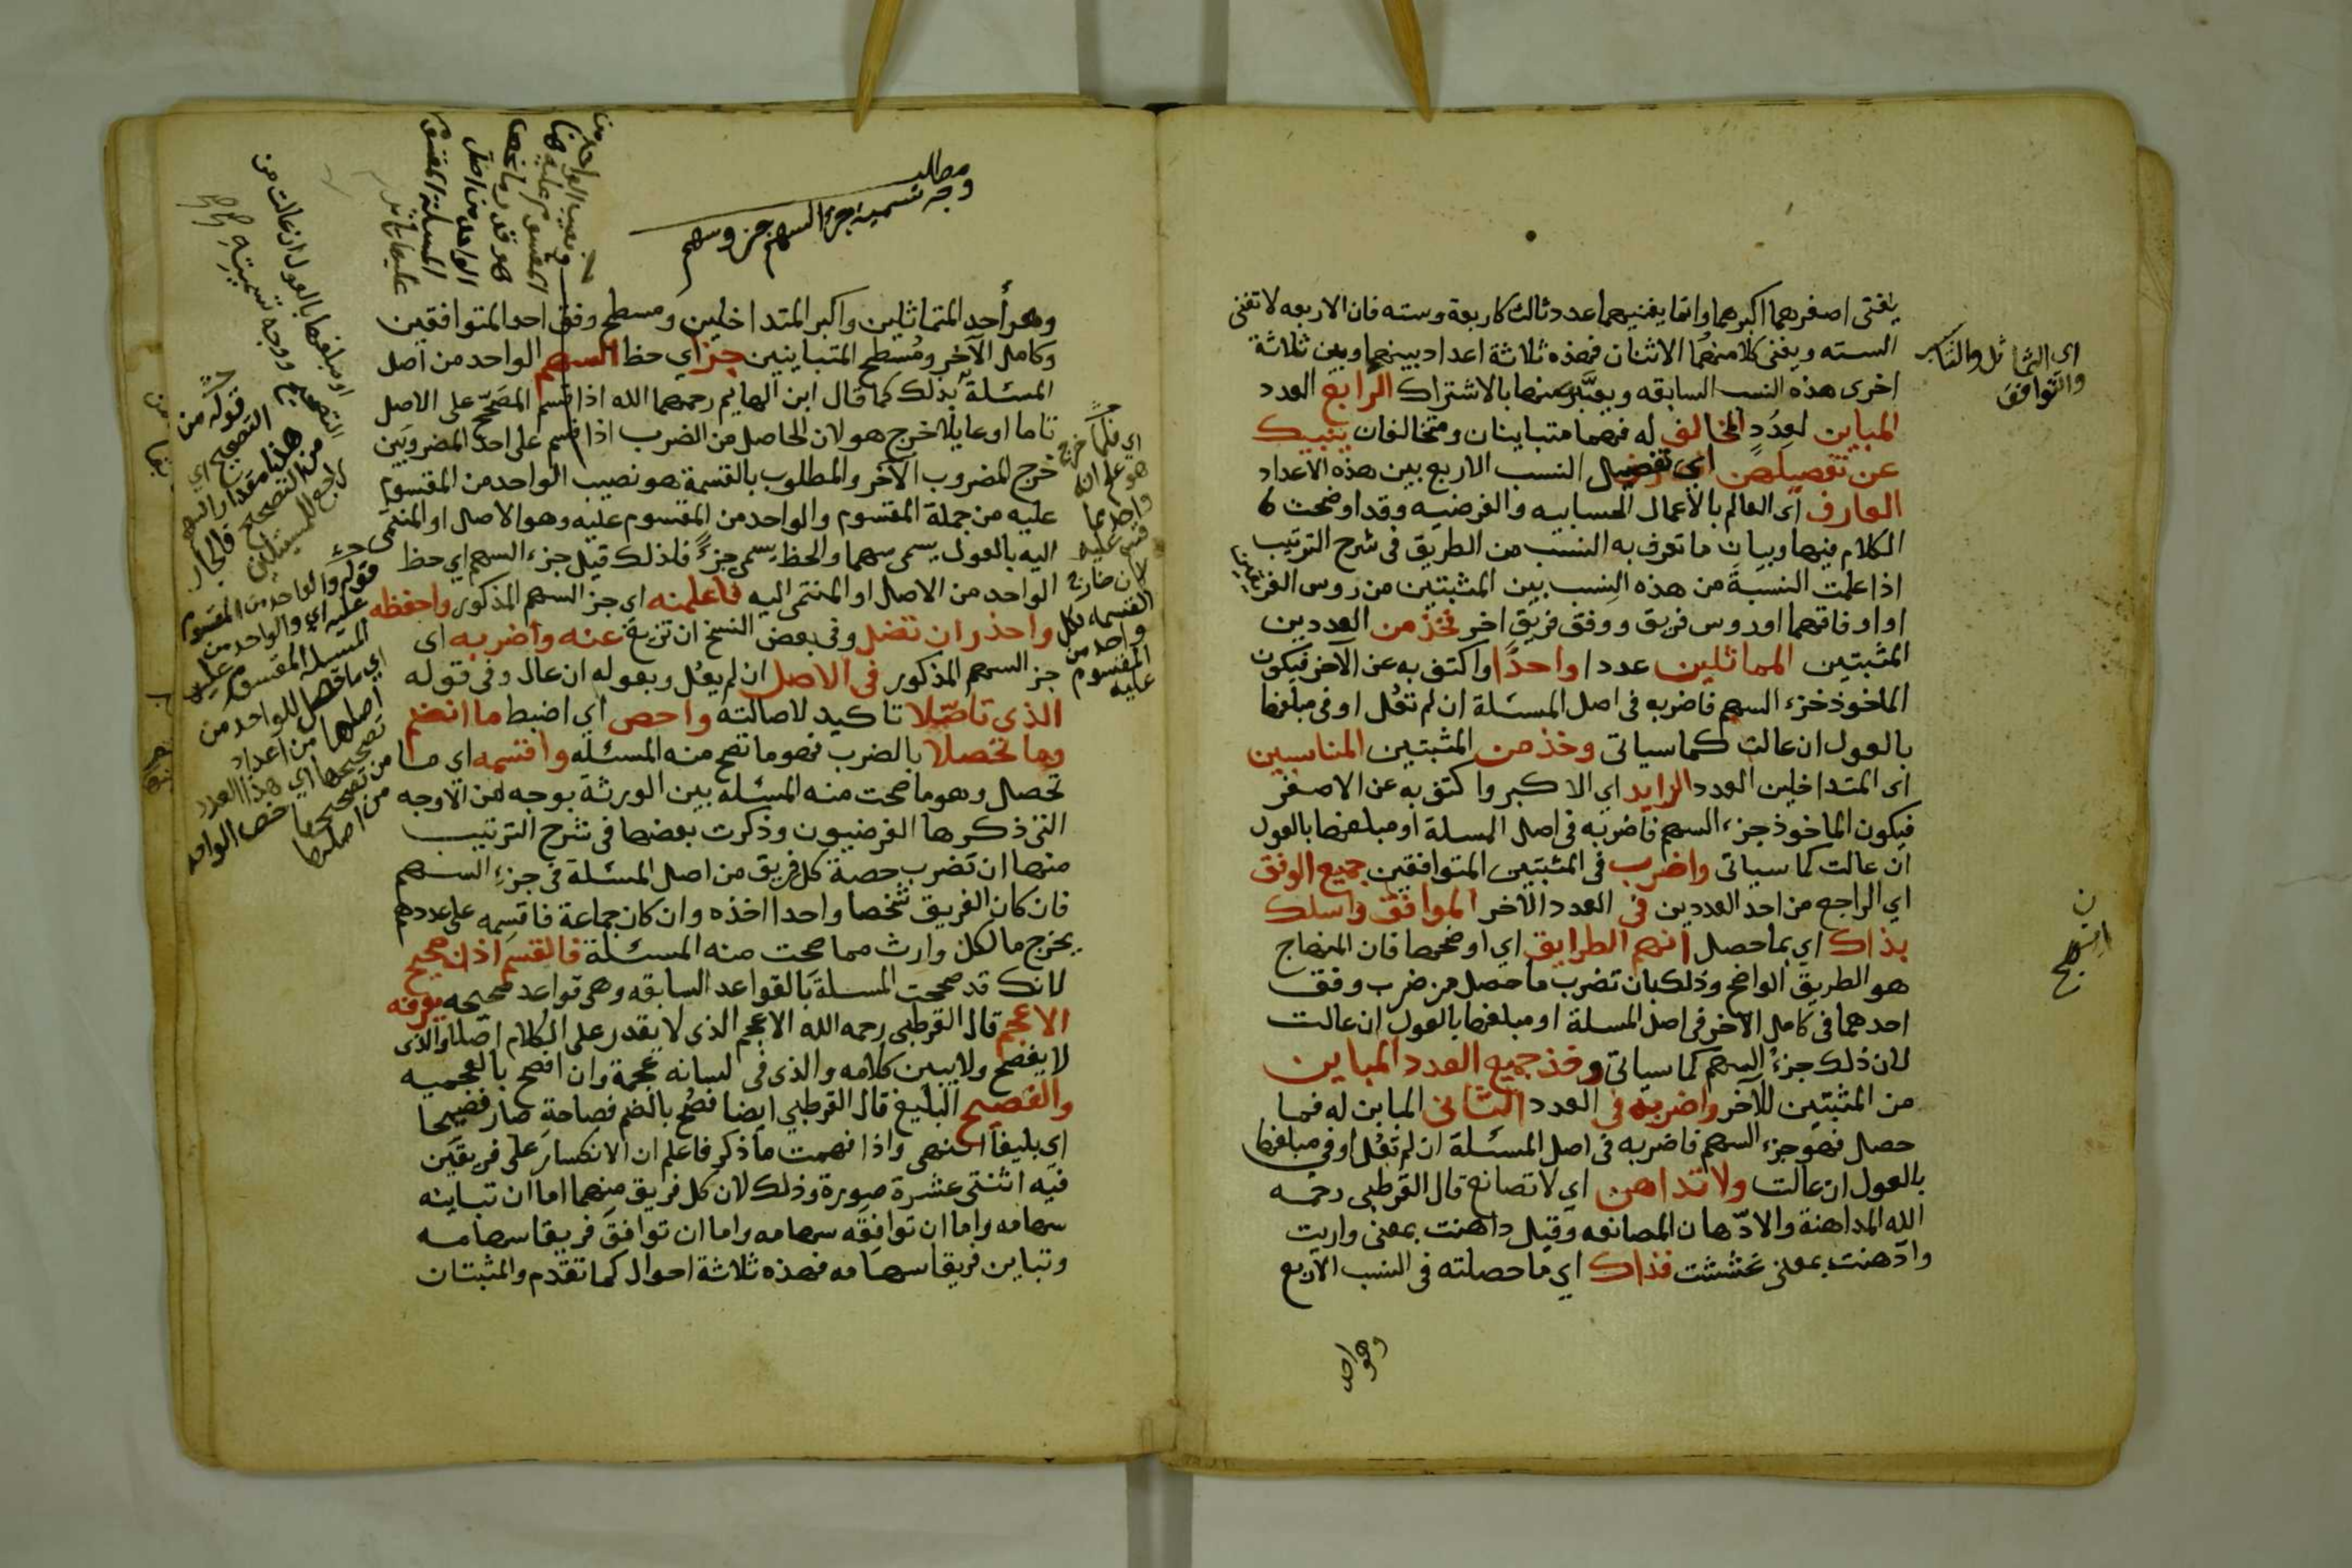 يفنى اصغرهما اكبرهما وانما يفنيهما عدد ثالث كاربعة وسته فان الاربعه لا تفنى
السته ويفنى كلا منهما الاثنان فهذه ثلاثة اعداد بينهما وبين ثلاثة
اخرى هذه النسب السابقه ويعبَّر عنها بالاشتراك الرابع العدد
المباين لعدد المخالف له فهما متباينان ومتخالفان ينبيك
عن تفصيلهن اي تفصيل النسب الاربع بين هذه الاعداد
العارف اى العالم بالأعمال الحسابيه والفرضيه وقد اوضحت
الكلام فيها وبيان ما تعرف به النسب من الطريق فى شرح الترتيب
اذا علمت النسبة من هذه النسب بين المثبتين من روس الفريقين
او اوفاقهما او روس فريق ووفق فريق اخر فخذ من العددين
المثبتين المماثلين عددا واحدًا واكتف به عن الآخر فيكون
الماخوذ جزء السهم فاضربه فى اصل المسئلة ان لم تعُل او فى مبلغها
بالعول ان عالت كما سياتى وخذ من المثبتين المناسبين
اى المتداخلين العدد الزايد اي الاكبر واكتف به عن الاصغر
فيكون الماخوذ جزء السهم فاضربه فى اصل المسلة او مبلغها بالعول
ان عالت كما سياتى واضرب فى المثبتين المتوافقين جميع الوفق
اي الراجع من احد العددين فى العدد الآخر الموافق واسلك
بذاك اي بما حصل انهج الطرايق اي اوضحها فان المنهاج
هو الطريق الواضح وذلك بان تضرب ما حصل من ضرب وفق
احدهما فى كامل الآخر فى اصل المسلة او مبلغها بالعول ان عالت
لان ذلك جزء السهم كما سياتى وخذ جميع العدد المباين
من المثبتين للآخر واضربه فى العدد الثانى المباين له فما
حصل فهو جزء السهم فاضربه فى اصل المسئلة ان لم تعُل او فى مبلغها
بالعول ان عالت ولا تداهن اي لا تصانع قال القرطبى رحمه
الله المداهنة والادّهان المصانعه وقيل داهنت بمعنى واريت
وادّهنت بمعنى غششت فذاك اي ما حصلته فى النسب الاربع
وهو احد
اي التماثل والتناسب
والتوافق
مطلب
وجه تسمية جزء السهم جزء وسهم
وهو أحد المتماثلين واكبر المتداخلين ومسطح وفق احد المتوافقين
وكامل الآخر ومُسطح المتباينين جزء اي حظ السهم الواحد من اصل
المسئلة بذلك كما قال ابن الهايم رحمهما الله اذا قسم المصَحّح على الاصل
تاما او عايلا خرج هو لان الحاصل من الضرب اذا قسم على احد المضروبَين
خرج المضروب الآخر والمطلوب بالقسمة هو نصيب الواحد من المقسوم
عليه من جملة المقسوم والواحد من المقسوم عليه وهو الاصل او المنتهى
اليه بالعول يسمى سهما والحظ يسمى جزءً فلذلك قيل جزء السهم اي حظ
الواحد من الاصل او المنتهى اليه فاعلمنه اى جزء السهم المذكور واحفظه
واحذر ان تضل وفى بعض النسخ ان تزيغ عنه واضربه اى
جز السهم المذكور فى الاصل ان لم يعُل وبعوله ان عال وفى قوله
الذى تاصّلا تاكيد لاصالته واحص اي اضبط ما انضم
وما تحصلا بالضرب فهو ما تصح منه المسئله واقسمه اى ما
تحصل وهو ما صحت منه المسئلة بين الورثة بوجه من الاوجه
التى ذكرها الفرضيون وذكرت بعضها فى شرح الترتيب
منها ان تضرب حصة كل فريق من اصل المسئلة فى جزء السهم
فان كان الفريق شخصا واحدا اخذه وان كان جماعة فاقسمه على عددهم
يخرج ما لكل وارث مما صحت منه المسئلة فالقسم اذا صحيح
لانك قد صححت المسلة بالقواعد السابقه وهى قواعد صحيحه يعرفه
الاعجم قال القرطبى رحمه الله الاعجم الذى لا يقدر على الكلام اصلا والذى
لا يفصح ولا يبين كلامه والذى فى لسانه عجمة وان افصح بالعجميه
والفصيح البليغ قال القرطبي ايضا فصُح بالضم فصاحة صار فصيحا
اى بليغا انتهى واذا فهمت ما ذكر فاعلم ان الانكسار على فريقين
فيه اثنتى عشرة صورة وذلك لان كل فريق منهما اما ان تباينه
سهامه واما ان توافقه سهامه واما ان توافق فريقا سهامه
وتباين فريقا سهامه فهذه ثلاثة احوال كما تقدم والمثبتان
اي فكما خرج
واحد من
المقسوم
عليه
قوله من
التصحيح اي
من التصحيح
قوله والواحد من المقسوم
عليه اي والواحد من
المسلة المقسوم عليه
او مبلغها بالعول ان عالت من
ووجه تسميته